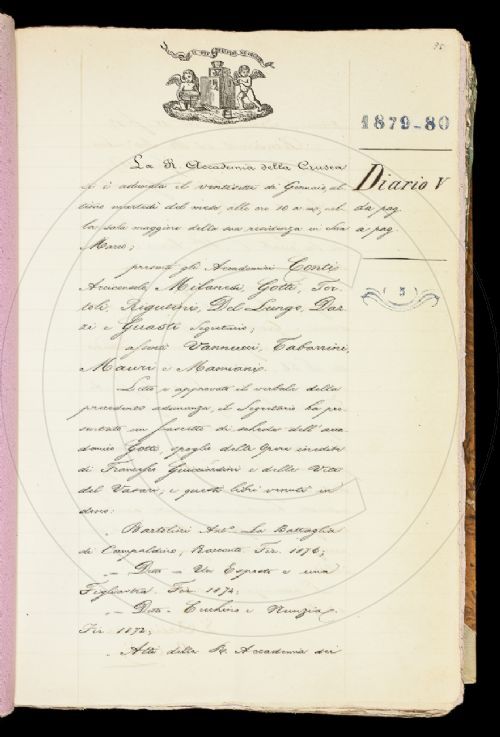 95
1879-80
Diario V
da pag
a pag
( 5 )
La R. Accademia della Crusca
si è adunata il ventisette di Gennaio, ul
timo martedì del mese, alle ore 10 a. m., nel
la sala maggiore della sua residenza in San
Marco;
presenti gli Accademici Conti
Arciconsolo, Milanesi, Gotti, Tor
toli, Rigutini, Del Lungo, Daz
zi e Guasti Segretario;
assenti Vannucci, Tabarrini,
Mauri e Mamiani.
Letto e approvato il verbale della
precedente adunanza, il Segretario ha pre
sentato un fascetto di schede dell'acca
demico Gotti, spoglio delle Opere inedite
di Francesco Guicciardini e delle Vite
del Vasari; e questi libri venuti in
dono:
Bartolini Ant.o La Battaglia
di Campaldino, Racconto. Fir. 1876;
— Detto — Un Esposto e una
Figliastra. Fir. 1874;
— Detto — Cecchino e Nunzia.
Fir. 1872;
Atti della R. Accademia dei